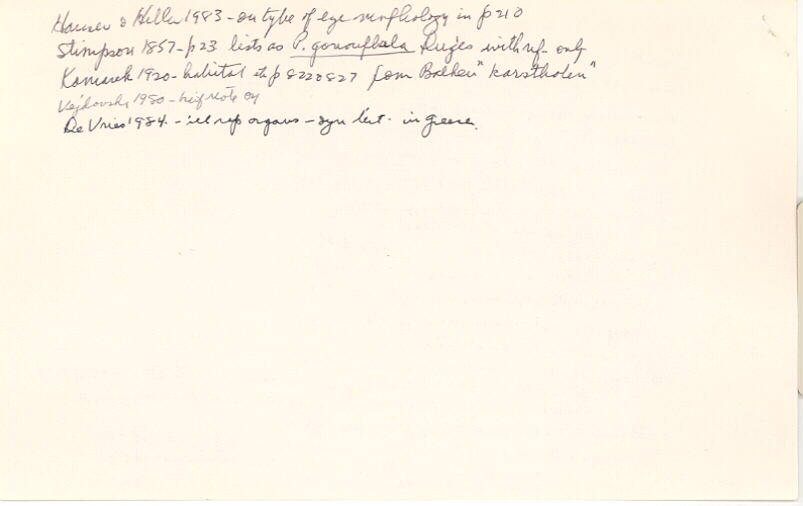 Hauser & Heller 1983 - on type of eye morphology in p 210
Stimpson 1857 - p 23 lists as P. gonocephala Dugès with ref. only
Komarek 1920 - habitat etc p 822 & 827 from Balkan "karsthölen"
Vejdovsky 1930 - note on
De Vries 1984 - ill rep organs - syn list - in Greece.